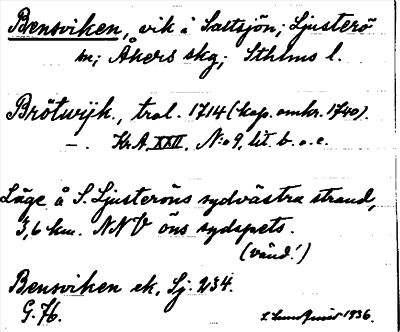 Bensviken, vik i Saltsjön; Ljusterö
sn; Åkers skg; Sthlms l.
Brötwijk, trol. 1714 (kop. omkr. 1740).
—. Kr.A. XXII, N:o 9, lit. b. o. c.
Läge å S. Ljusteröns sydvästra strand,
3,6 km. NNV öns sydspets.
(vänd!)
Bensviken ek. Lj. 234.
G. 76. 1936.